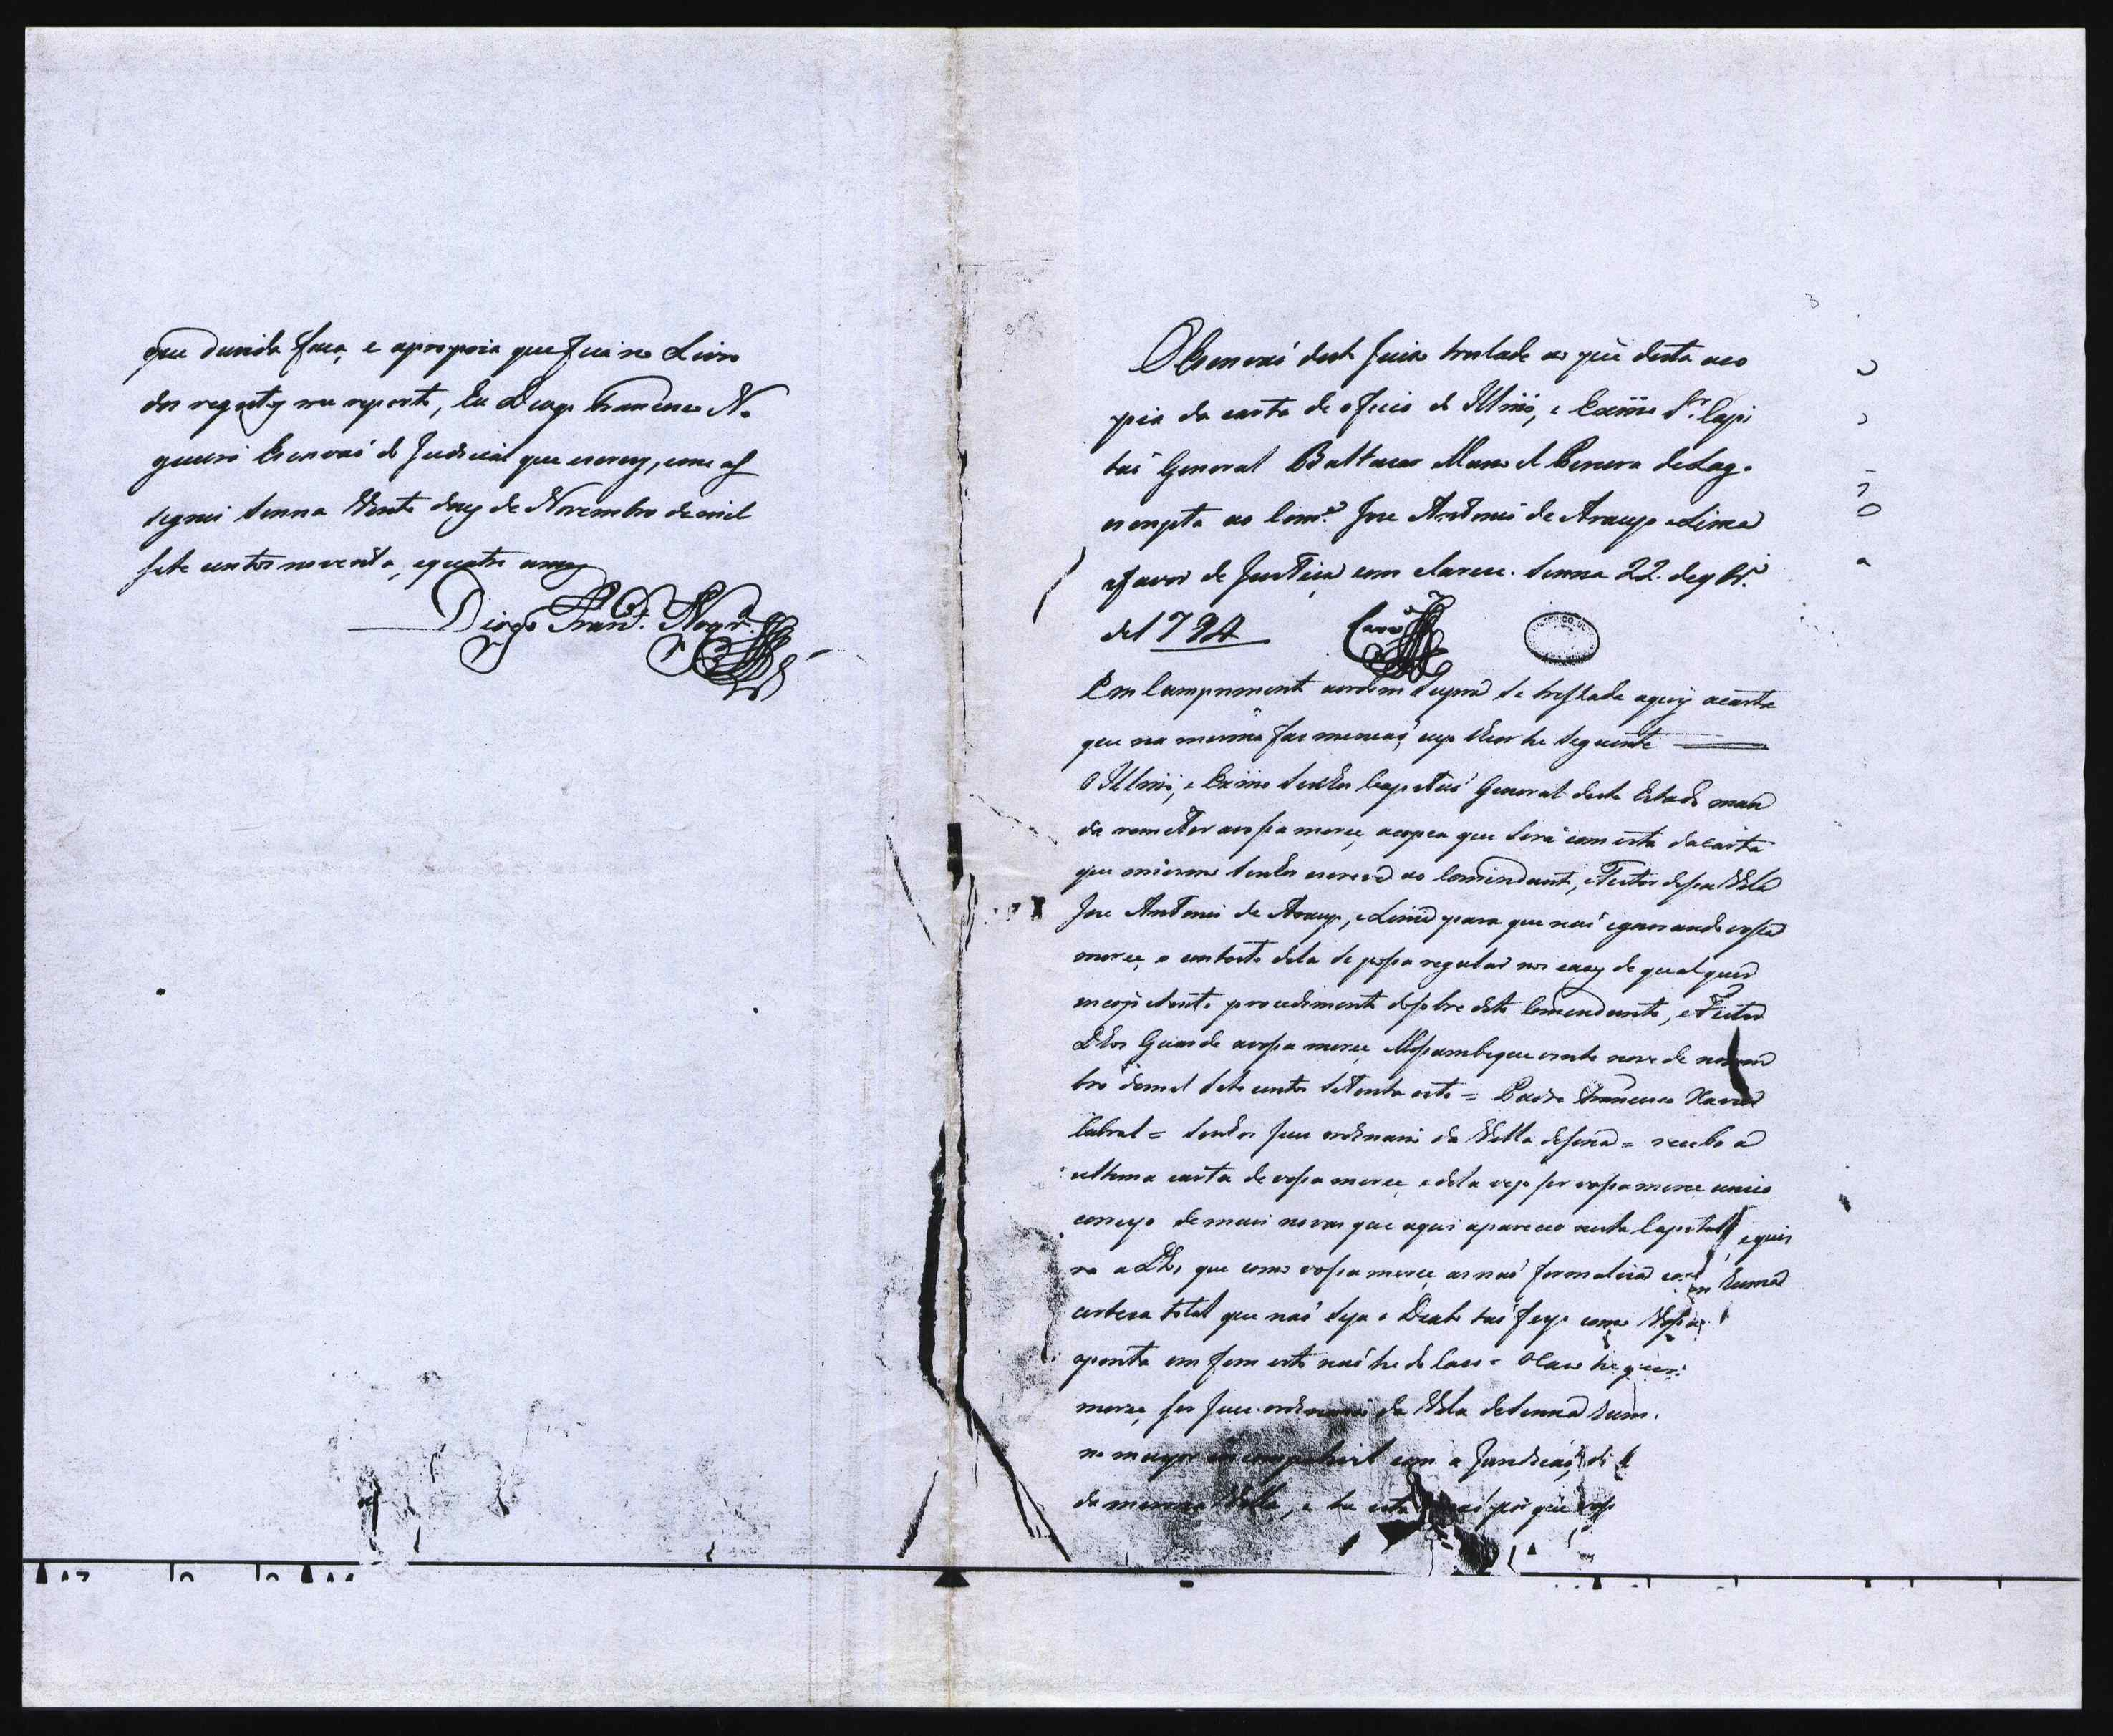 que duvida faça, e apropria que fica no Livro
dos registos me reporto, Eu Diogo Francisco No
gueira Escrivaõ do Judicial que escrevy, e me as
signei Senna Vinte dous de Novembro de mil
sete centos noventa, e quatro annos
Diogo Franco. Nogra.
3
O Escrivaõ deste Juizo traslade ao pé desta a co
pia da carta de oficio do Illmo, e Exmo Sr. Capi
taõ General Baltazar Manoel Pereira do Lago
escripta ao Comde. Joze Antonio de Araujo e Lima
a favor de Justiça com clareza. Senna 22. de 9br.o
de 1794
Em Cumprimento a ordem supra se treslada aquy a carta
que na mesma faz mençaõ, cujo theor he seguinte
O Illmo, e Exmo Senhor Capitaõ General deste Estado man
da remetter a vossa merce, a copea que será com esta da Carta
que o mesmo Senhor escreveo ao Comendante, e Feitor dessa Vila
Joze Antonio de Araujo, e Lima para que naõ ignorando vossa
merce, o contexto dela se possa regular nos cazos de qualquer
procedimento do sobre dito Comendante, e Feitor
Deos Guarde a vossa merce Mossambique vinte nove de novem
bro de mil sete centos setenta e oito = Pedro Francisco Xavier
Cabral = Senhor Juiz ordinario da Villa de Sena = recebo a
ultima carta de vossa merce, e dela vejo ser vossa merce unico
correyo de mais novas que aqui apareceo nesta Capital, e quei
ra a Deos que como vossa merce as naõ formaliza com huma
certeza total que naõ seja o Diabo taõ feyo como Vossa
aponta em fim este naõ he do Cazo = O Cazo he que
merce, ser Juiz ordinario da Vila de Senna hum
no mayor incompativel com a Jurisdicaõ de
da mesma Villa, e he esta porque vos